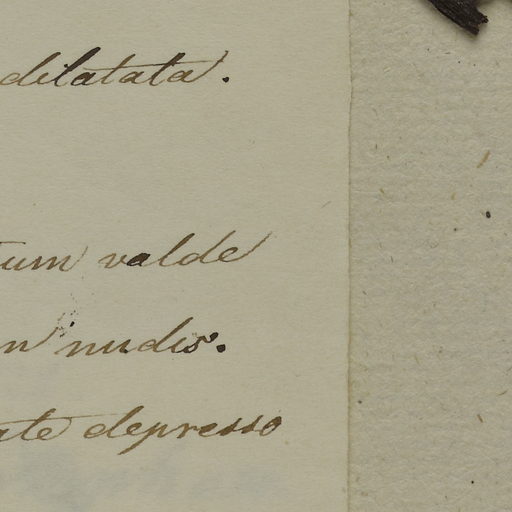 dilatata.
tum valde
n nudis.
ate depresso